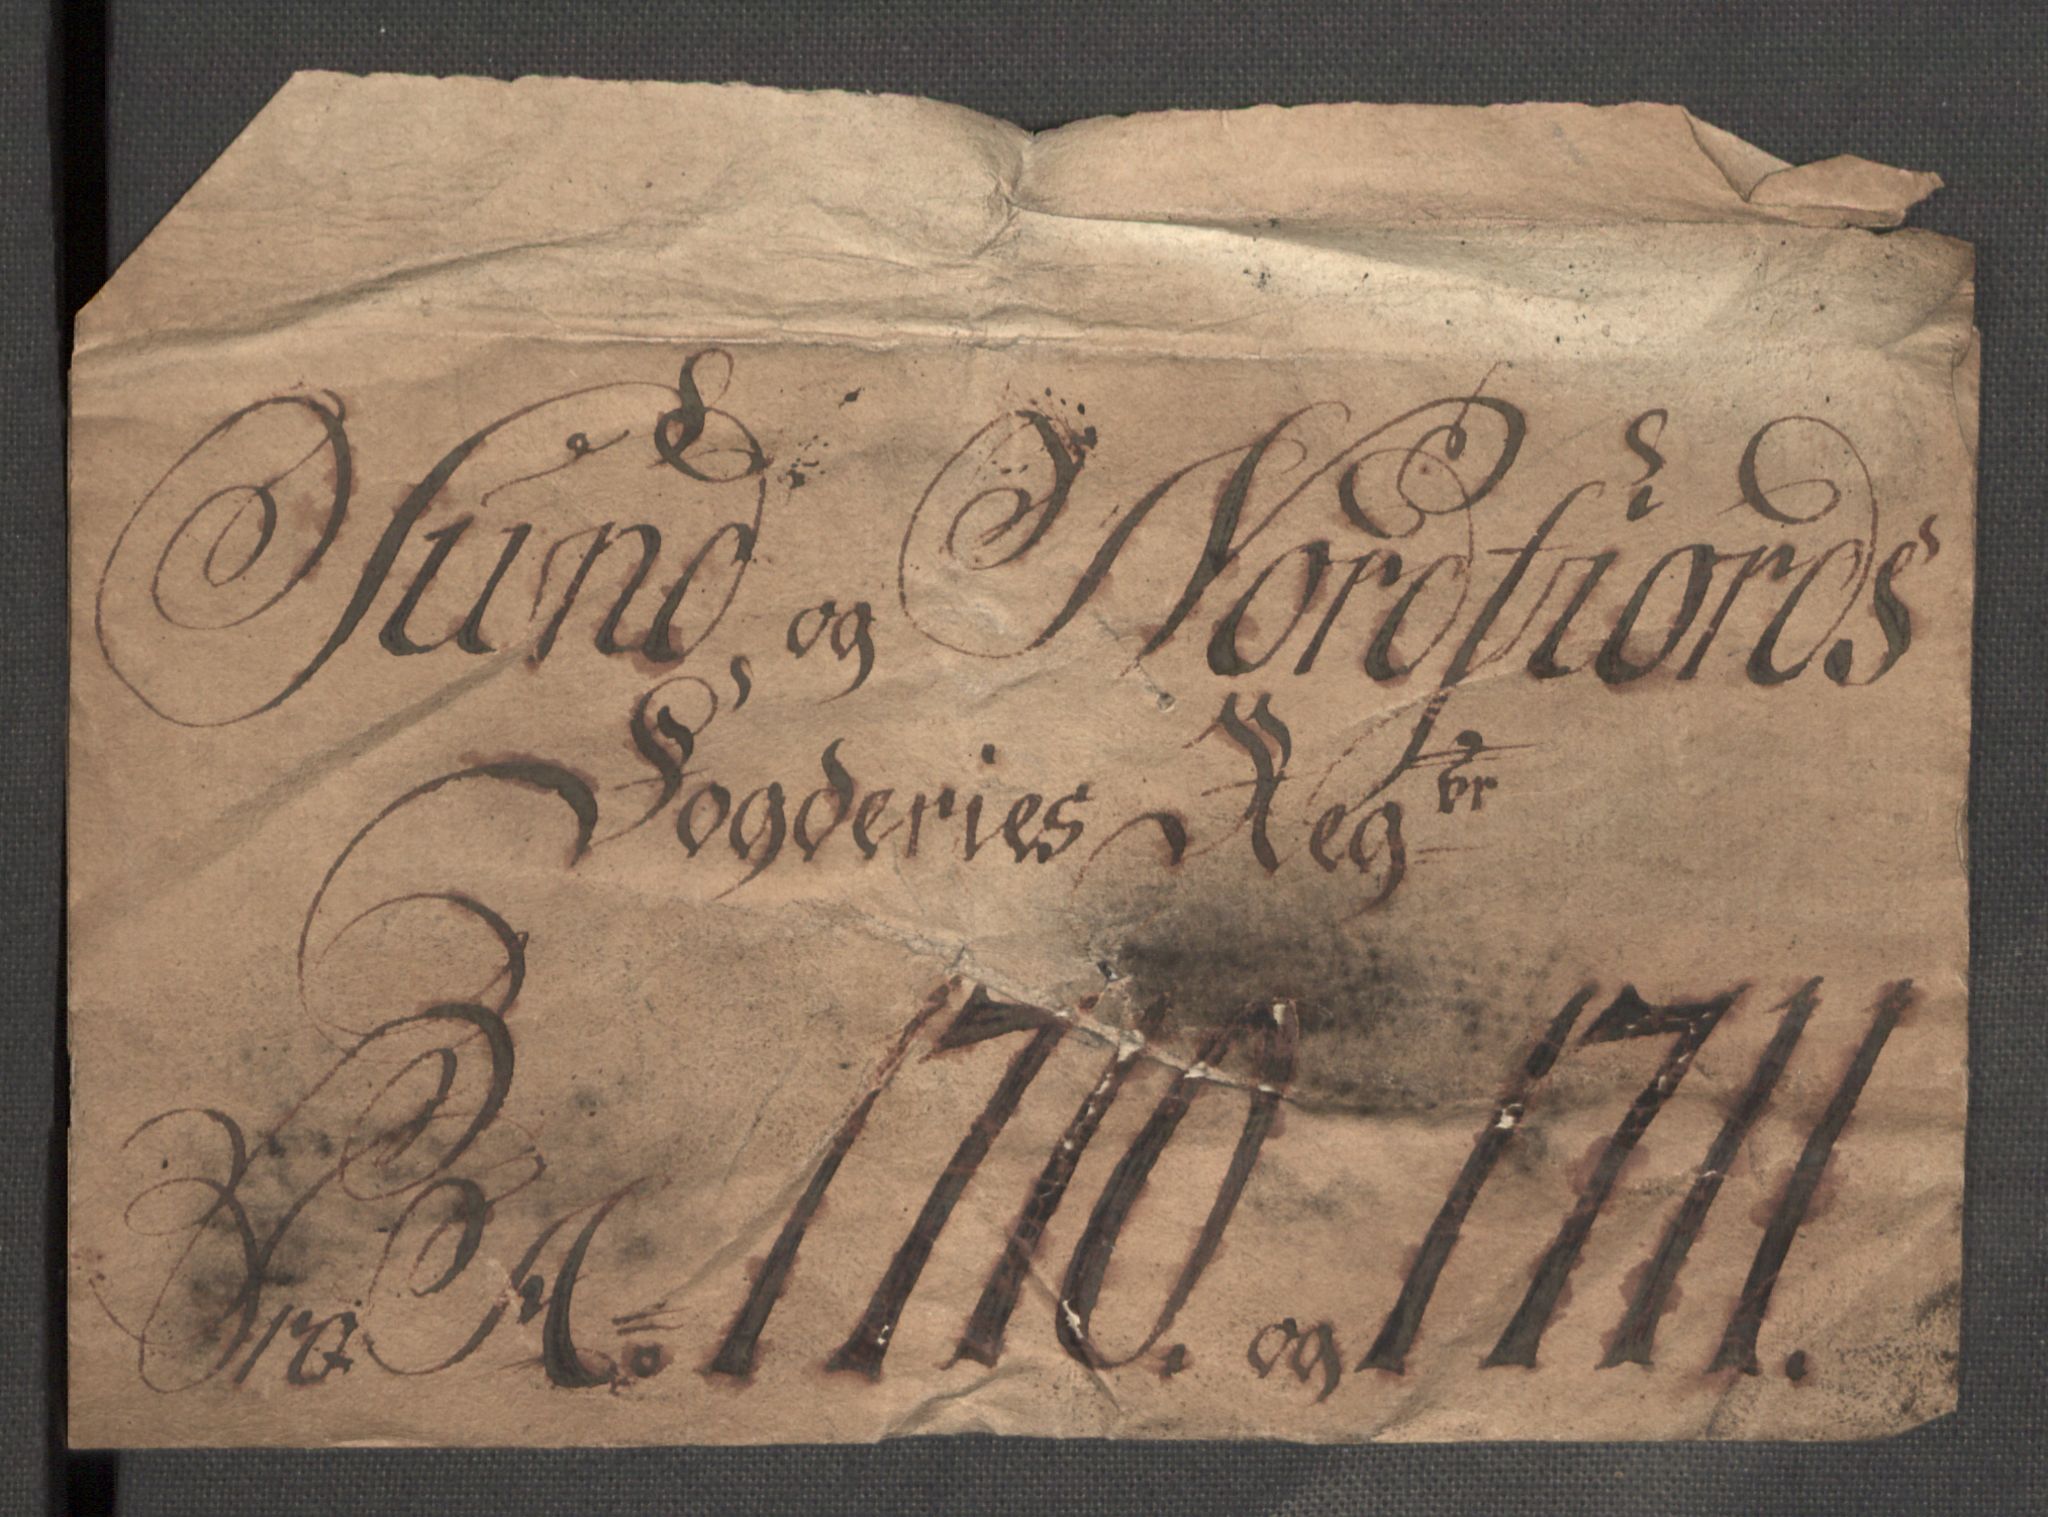 Sund, og Nordfiords
Fogderies Regr
Fra Ao 1710. og 1711.